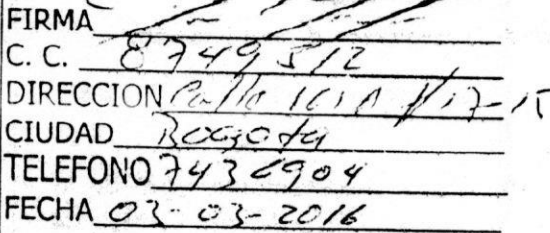 FIRMA
C. C. 8749512
DIRECCION Calle
CIUDAD Bogota
TELEFONO 7436904
FECHA 03-03-2016